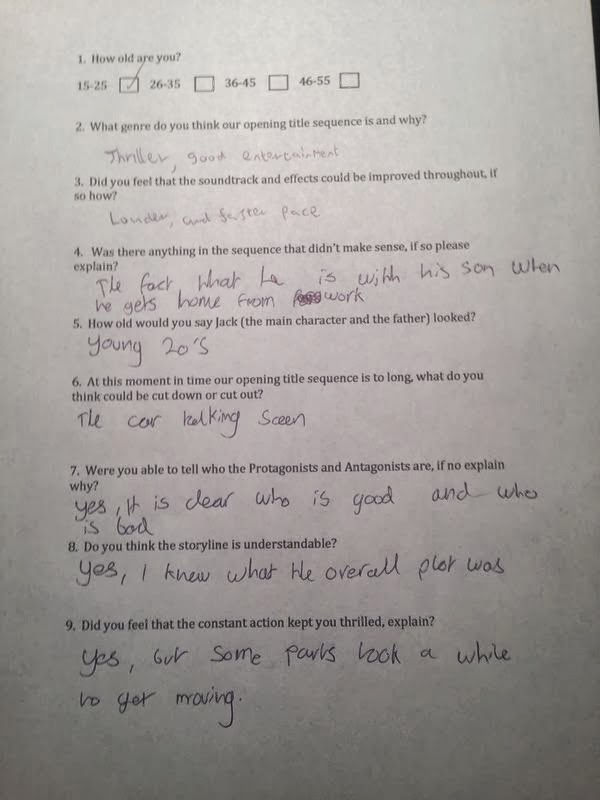 1. How old are you?
15-25 26-35 36-45 46-55
2. What genre do you think our opening title sequence is and why?
Thriller, good entertainment
3. Did you feel that the soundtrack and effects could be improved throughout, if
so how?
Louder, and faster pace
4. Was there anything in the sequence that didn't make sense, if so please
explain?
The fact what he is with his son when
he gets home from work
5. How old would you say Jack (the main character and the father) looked?
Young 20's
6. At this moment in time our opening title sequence is to long, what do you
think could be cut down or cut out?
The car talking sceen
7. Were you able to tell who the Protagonists and Antagonists are, if no explain
why?
yes, it is clear who is good and who
is bad
8. Do you think the storyline is understandable?
Yes, I knew what the overall plot was
9. Did you feel that the constant action kept you thrilled, explain?
Yes, but some parts took a while
to get moving.